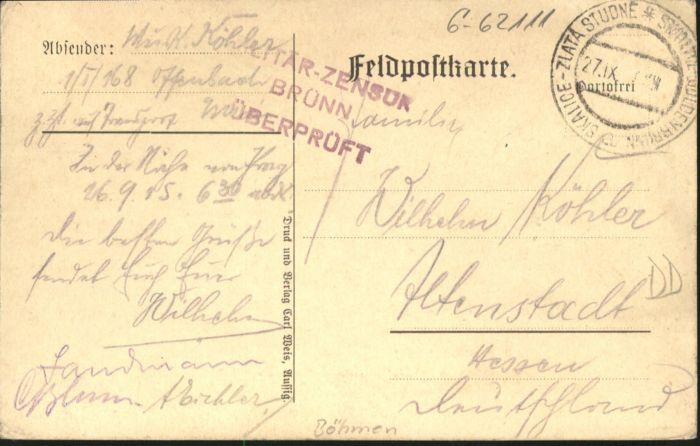 6-62111
Absender: Wilh. Köhler
1/I/168 Offenbach
z. Zt. auf Transport
In der Nähe von Prag
26.9.15. 6 30 abds.
Die besten Grüße
sendet Euch Euer
Wilhelm
Landmann
Blum A Eichler
Druck und Verlag Carl Weis, Aussig.
MILITÄR-ZENSUR
BRÜNN
ÜBERPRÜFT
Feldpostkarte.
Portofrei
SKALICE-ZLATA STUDNE *
27.IX
Familie
Wilhelm Köhler
Altenstadt
Hessen
Deutschland
DD
Böhmen